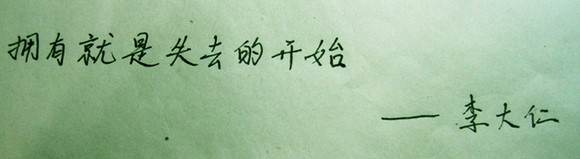 拥有就是失去的开始
——李大仁